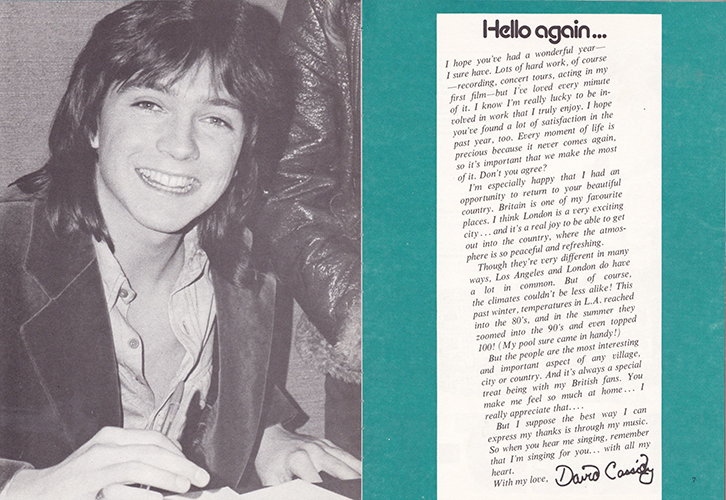 Hello again...
I hope you've had a wonderful year—
I sure have. Lots of hard work, of course
—recording, concert tours, acting in my
first film—but I've loved every minute
of it. I know I'm really lucky to be in-
volved in work that I truly enjoy. I hope
you've found a lot of satisfaction in the
past year, too. Every moment of life is
precious because it never comes again,
so it's important that we make the most
of it. Don't you agree?
I'm especially happy that I had an
opportunity to return to your beautiful
country. Britain is one of my favourite
places. I think London is a very exciting
city... and it's a real joy to be able to get
out into the country, where the atmos-
phere is so peaceful and refreshing.
Though they're very different in many
ways, Los Angeles and London do have
a lot in common. But of course,
the climates couldn't be less alike! This
past winter, temperatures in L.A. reached
into the 80's, and in the summer they
zoomed into the 90's and even topped
100! (My pool sure came in handy!)
But the people are the most interesting
and important aspect of any village,
city or country. And it's always a special
treat being with my British fans. You
make me feel so much at home... I
really appreciate that....
But I suppose the best way I can
express my thanks is through my music.
So when you hear me singing, remember
that I'm singing for you... with all my
heart.
With my love, David Cassidy
7